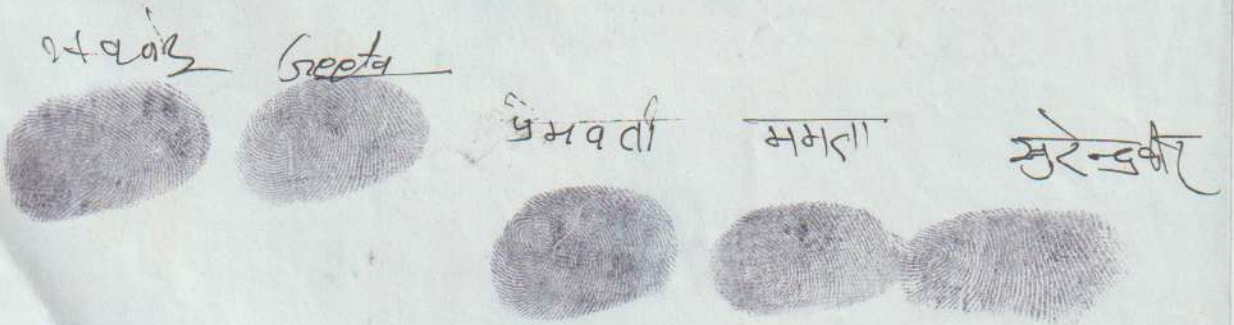 Geeta
प्रेमवती ममता सुरेन्द्र कौर